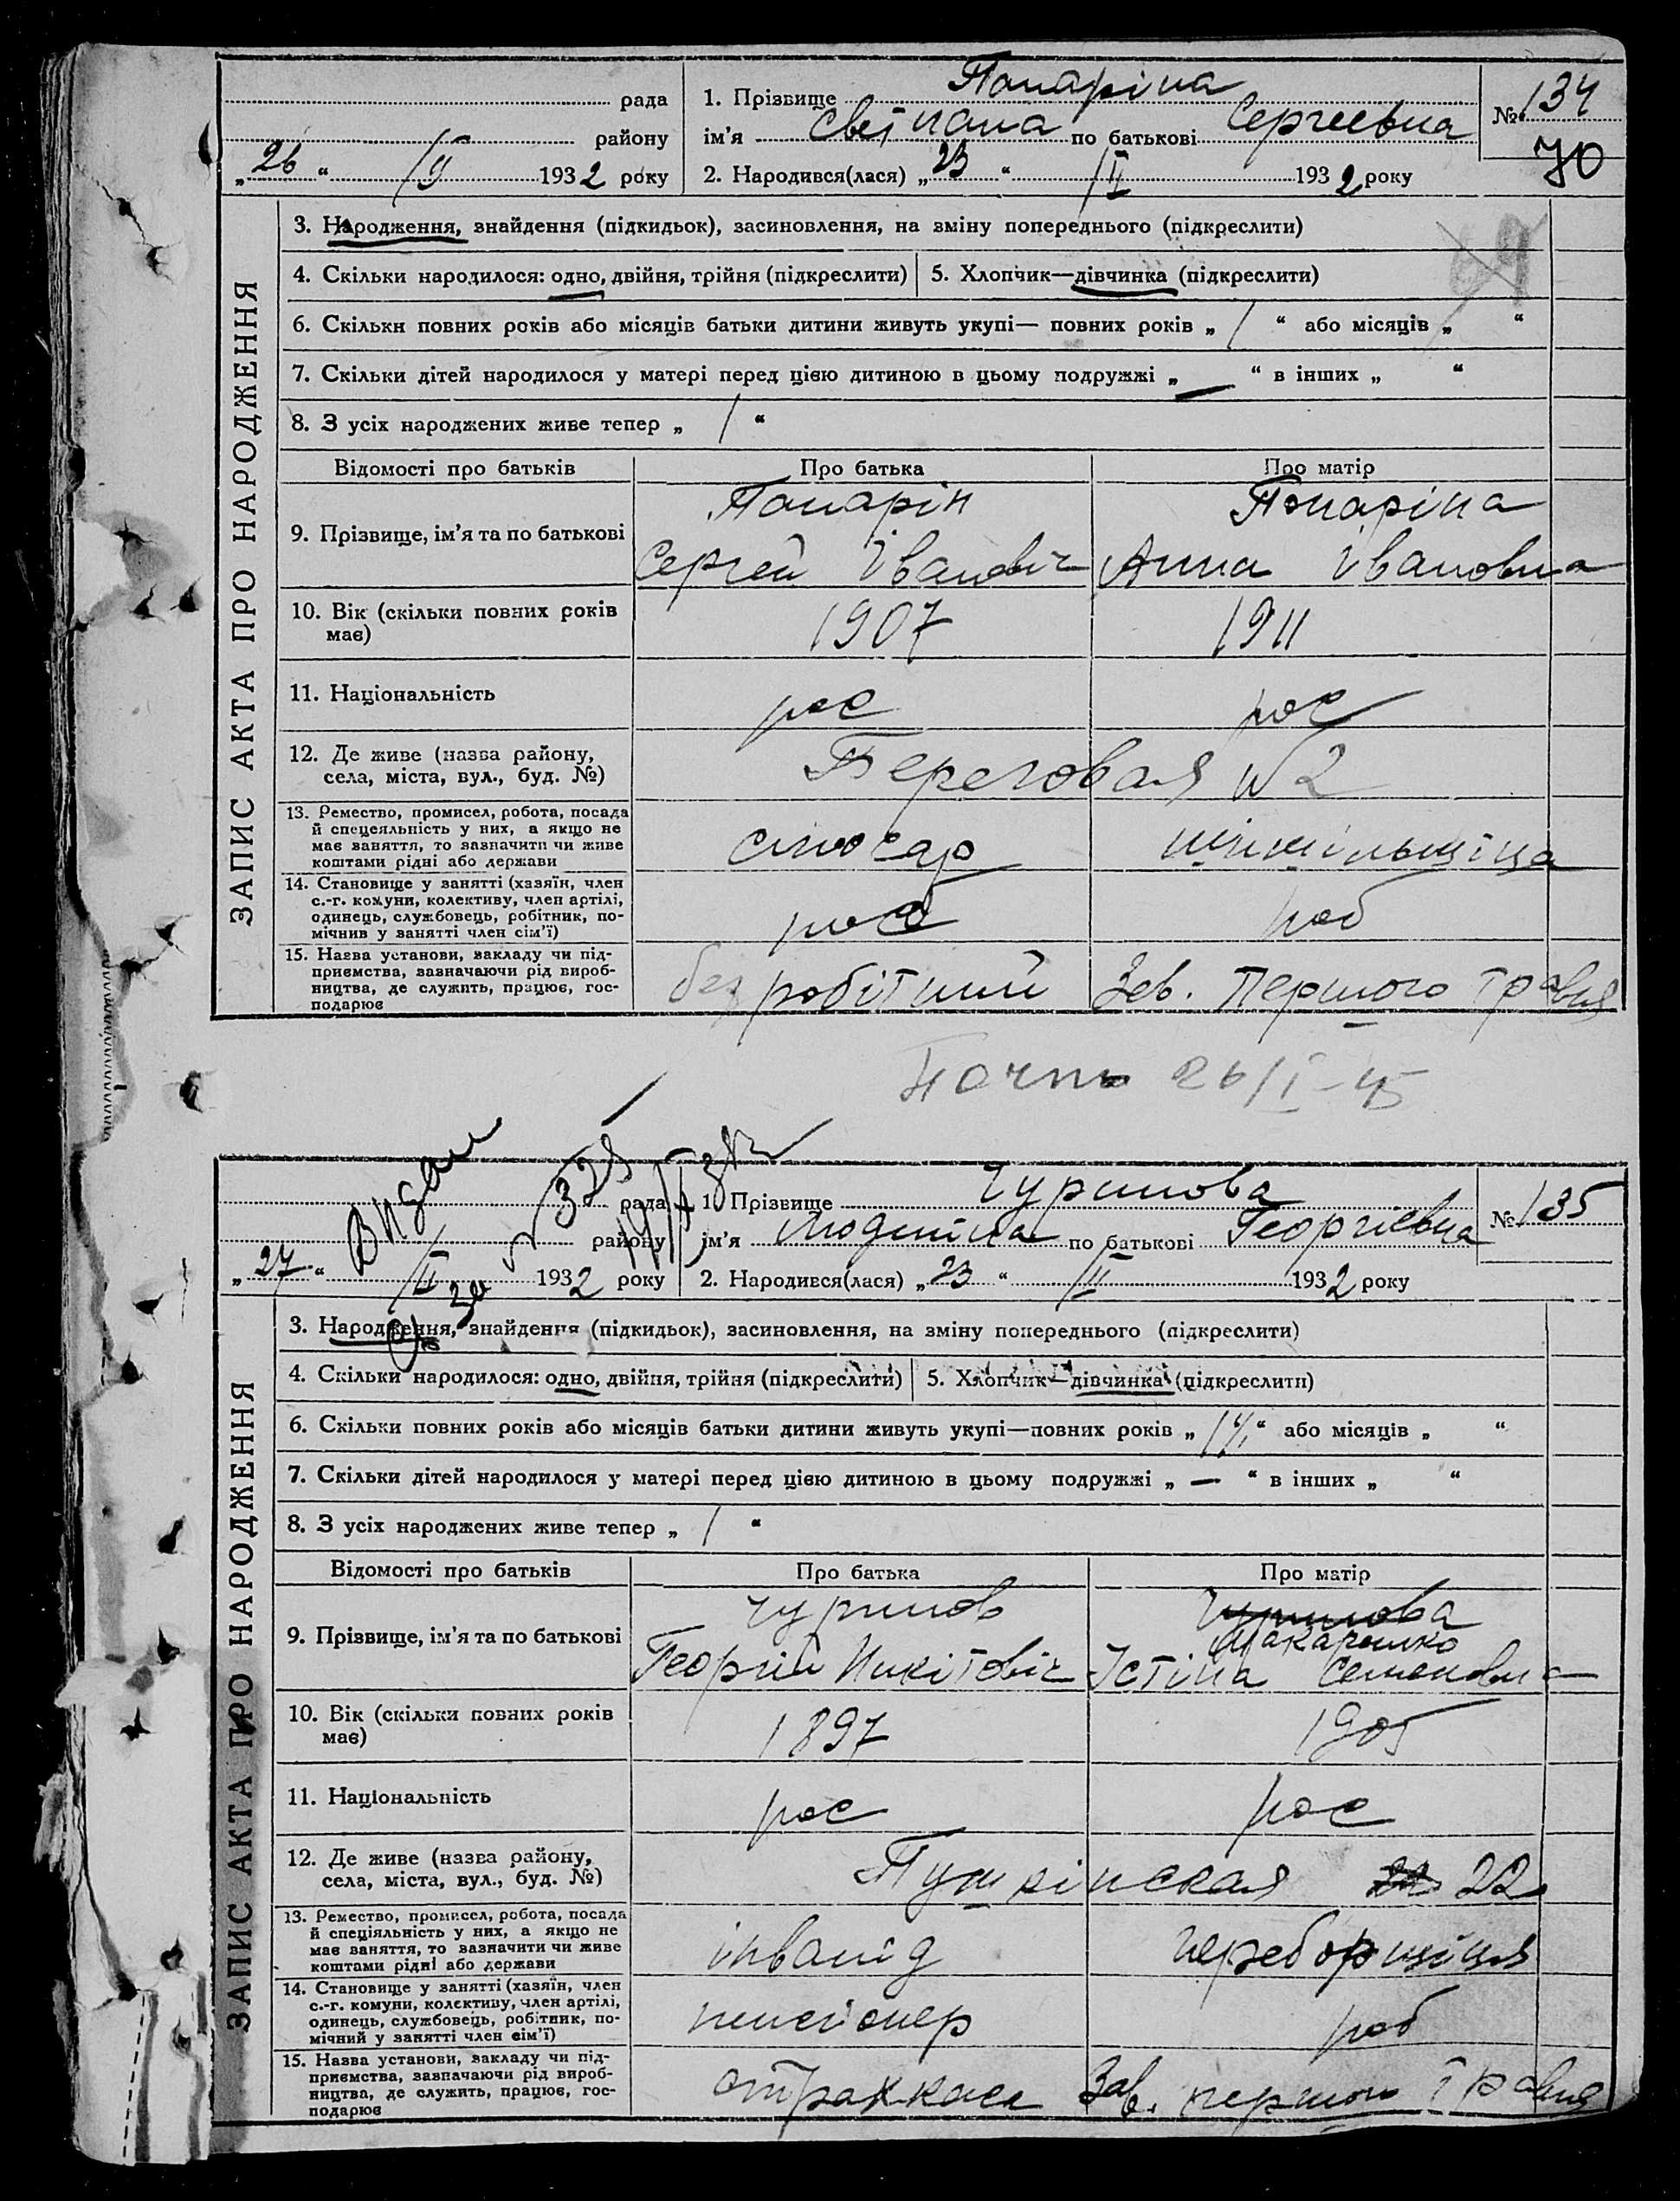 рада
району
„26“ /II 1932 року
1. Прізвище Понаріна
ім’я Светлана по батькові Сергеевна
2. Народився(лася) „23“ /II 1932 року
№ 134
70
ЗАПИС АКТА ПРО НАРОДЖЕННЯ
3. Народження, знайдення (підкидьок), засиновлення, на зміну попереднього (підкреслити)
4. Скільки народилося: одно, двійня, трійня (підкреслити) 5. Хлопчик—дівчинка (підкреслити)
6. Скільки повних років або місяців батьки дитини живуть укупі— повних років „ 1 “ або місяців „ “
7. Скільки дітей народилося у матері перед цією дитиною в цьому подружжі „ — “ в інших „ “
8. З усіх народжених живе тепер „ 1 “
Відомості про батьків Про батька Про матір
9. Прізвище, ім’я та по батькові
Понарін Понаріна
Сергей Івановіч Анна Івановна
10. Вік (скільки повних років має) 1907 1911
11. Національність рос рос
12. Де живе (назва району, села, міста, вул., буд. №) Береговая №2
13. Ремество, промисел, робота, посада
й спецеяльність у них, а якщо не
має заняття, то зазначити чи живе
коштами рідні або держави
слюсар шпильщіца
14. Становище у занятті (хазяїн, член
с.-г. комуни, колективу, член артілі,
одинець, службовець, робітник, по-
мічнив у занятті член сім’ї)
роб роб
15. Назва установи, закладу чи під-
приємства, зазначаючи рід вироб-
ництва, де служить, працює, гос-
подарює
безробітний Зав. Першого травня
26/I-45
Видан
27/II 1932 року
рада
району
1. Прізвище Чурилова
ім’я Людміла по батькові Георгіевна
2. Народився(лася) „23“ /II 1932 року
№ 135
ЗАПИС АКТА ПРО НАРОДЖЕННЯ
3. Народження, знайдення (підкидьок), засиновлення, на зміну попереднього (підкреслити)
4. Скільки народилося: одно, двійня, трійня (підкреслити) 5. Хлопчик—дівчинка (підкреслити)
6. Скільки повних років або місяців батьки дитини живуть укупі—повних років „ “ або місяців „ “
7. Скільки дітей народилося у матері перед цією дитиною в цьому подружжі „ — “ в інших „ “
8. З усіх народжених живе тепер „ 1 “
Відомості про батьків Про батька Про матір
9. Прізвище, ім’я та по батькові
Чурилов Чурилова
Макаренко
Георгій Нікітовіч Устіна Семеновна
10. Вік (скільки повних років має) 1897 1905
11. Національність рос рос
12. Де живе (назва району, села, міста, вул., буд. №) Пушкінская 22
13. Ремество, промисел, робота, посада
й спеціяльність у них, а якщо не
має заняття, то зазначити чи живе
коштами рідні або держави
інвалід переборщіця
14. Становище у занятті (хазяїн, член
с.-г. комуни, колективу, член артілі,
одинець, службовець, робітник, по-
мічний у занятті член сім’ї)
пенсіонер роб
15. Назва установи, закладу чи під-
приємства, зазначаючи рід вироб-
ництва, де служить, працює, гос-
подарює
страхкаса Зав. першого травня